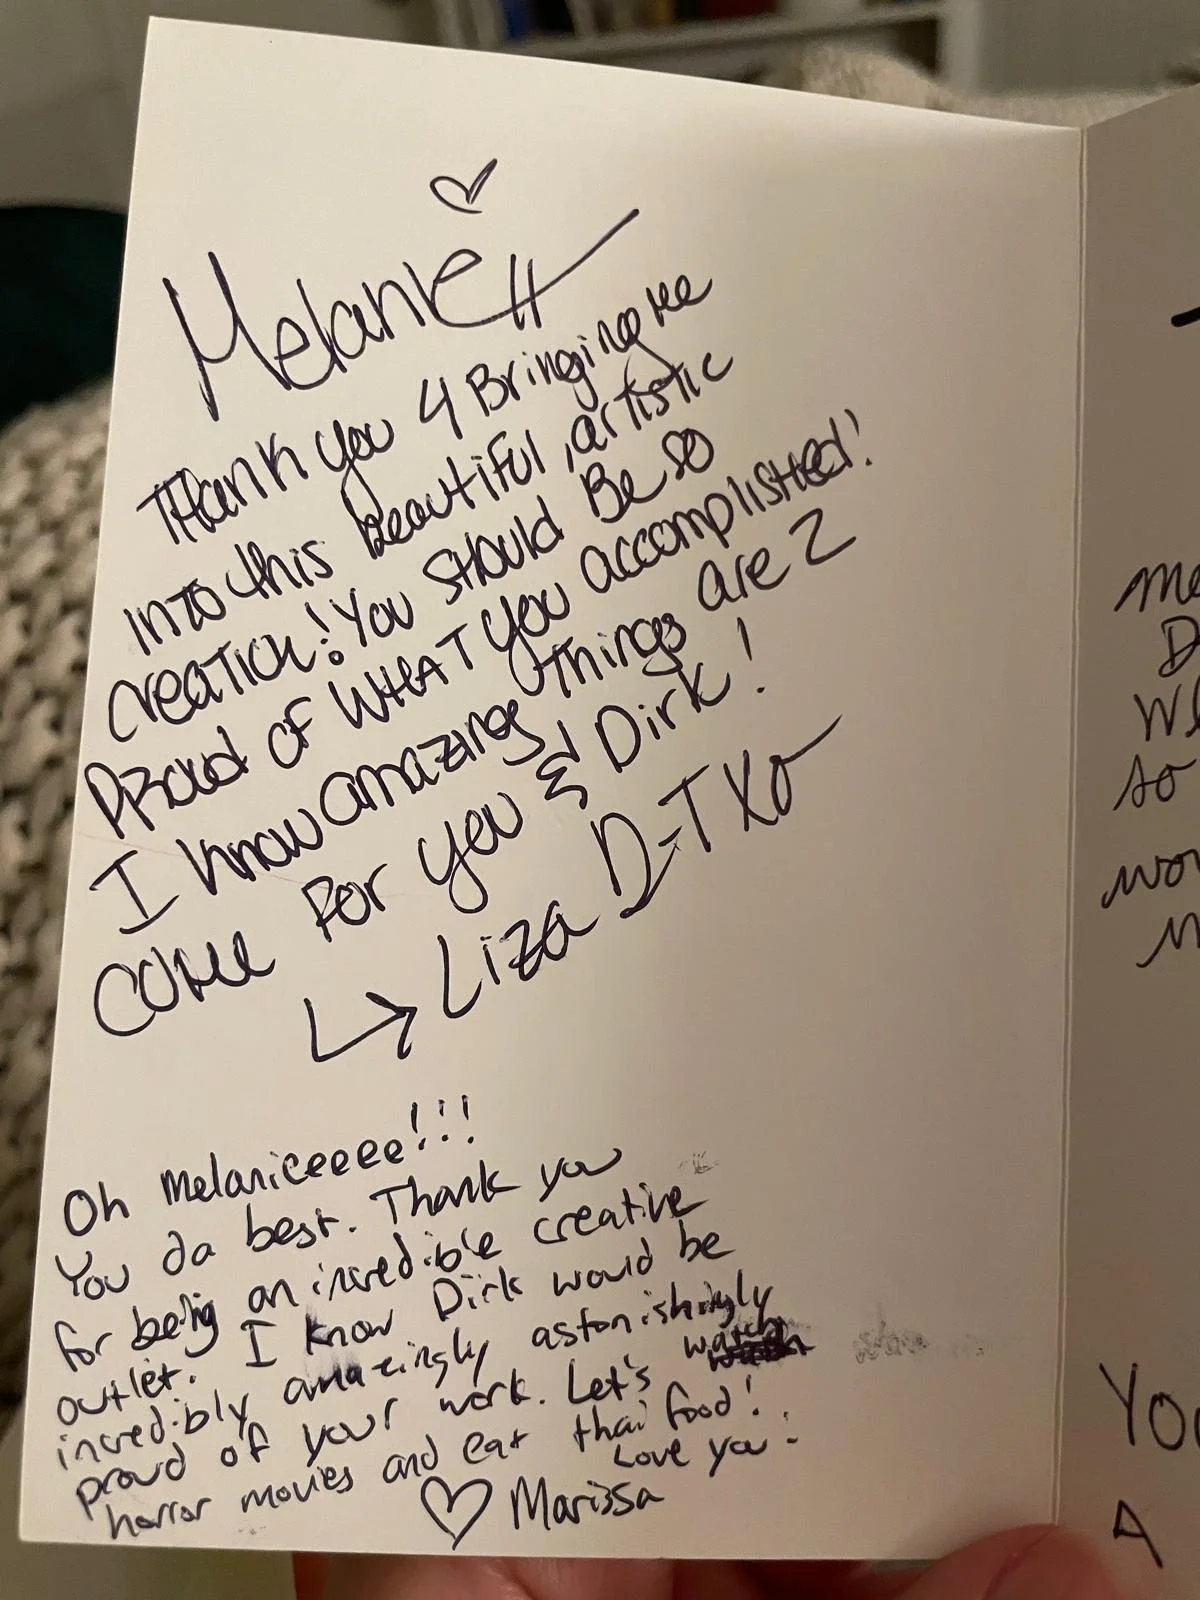 ♡
Melanie
Thank you 4 Bringing me
into this beautiful, artistic
creation! You should Be so
Proud of what you accomplished!
I know amazing things are 2
come for you & Dirk!
↳ Liza D-T XO
Oh Melanieeeee!!!
You da best. Thank you
for being an incredible creative
outlet. I know Dirk would be
incredibly amazingly astonishingly
proud of your work. Let's watch
horror movies and eat thai food!
Love you!
♡ Marissa
me
D
so
Yo
A